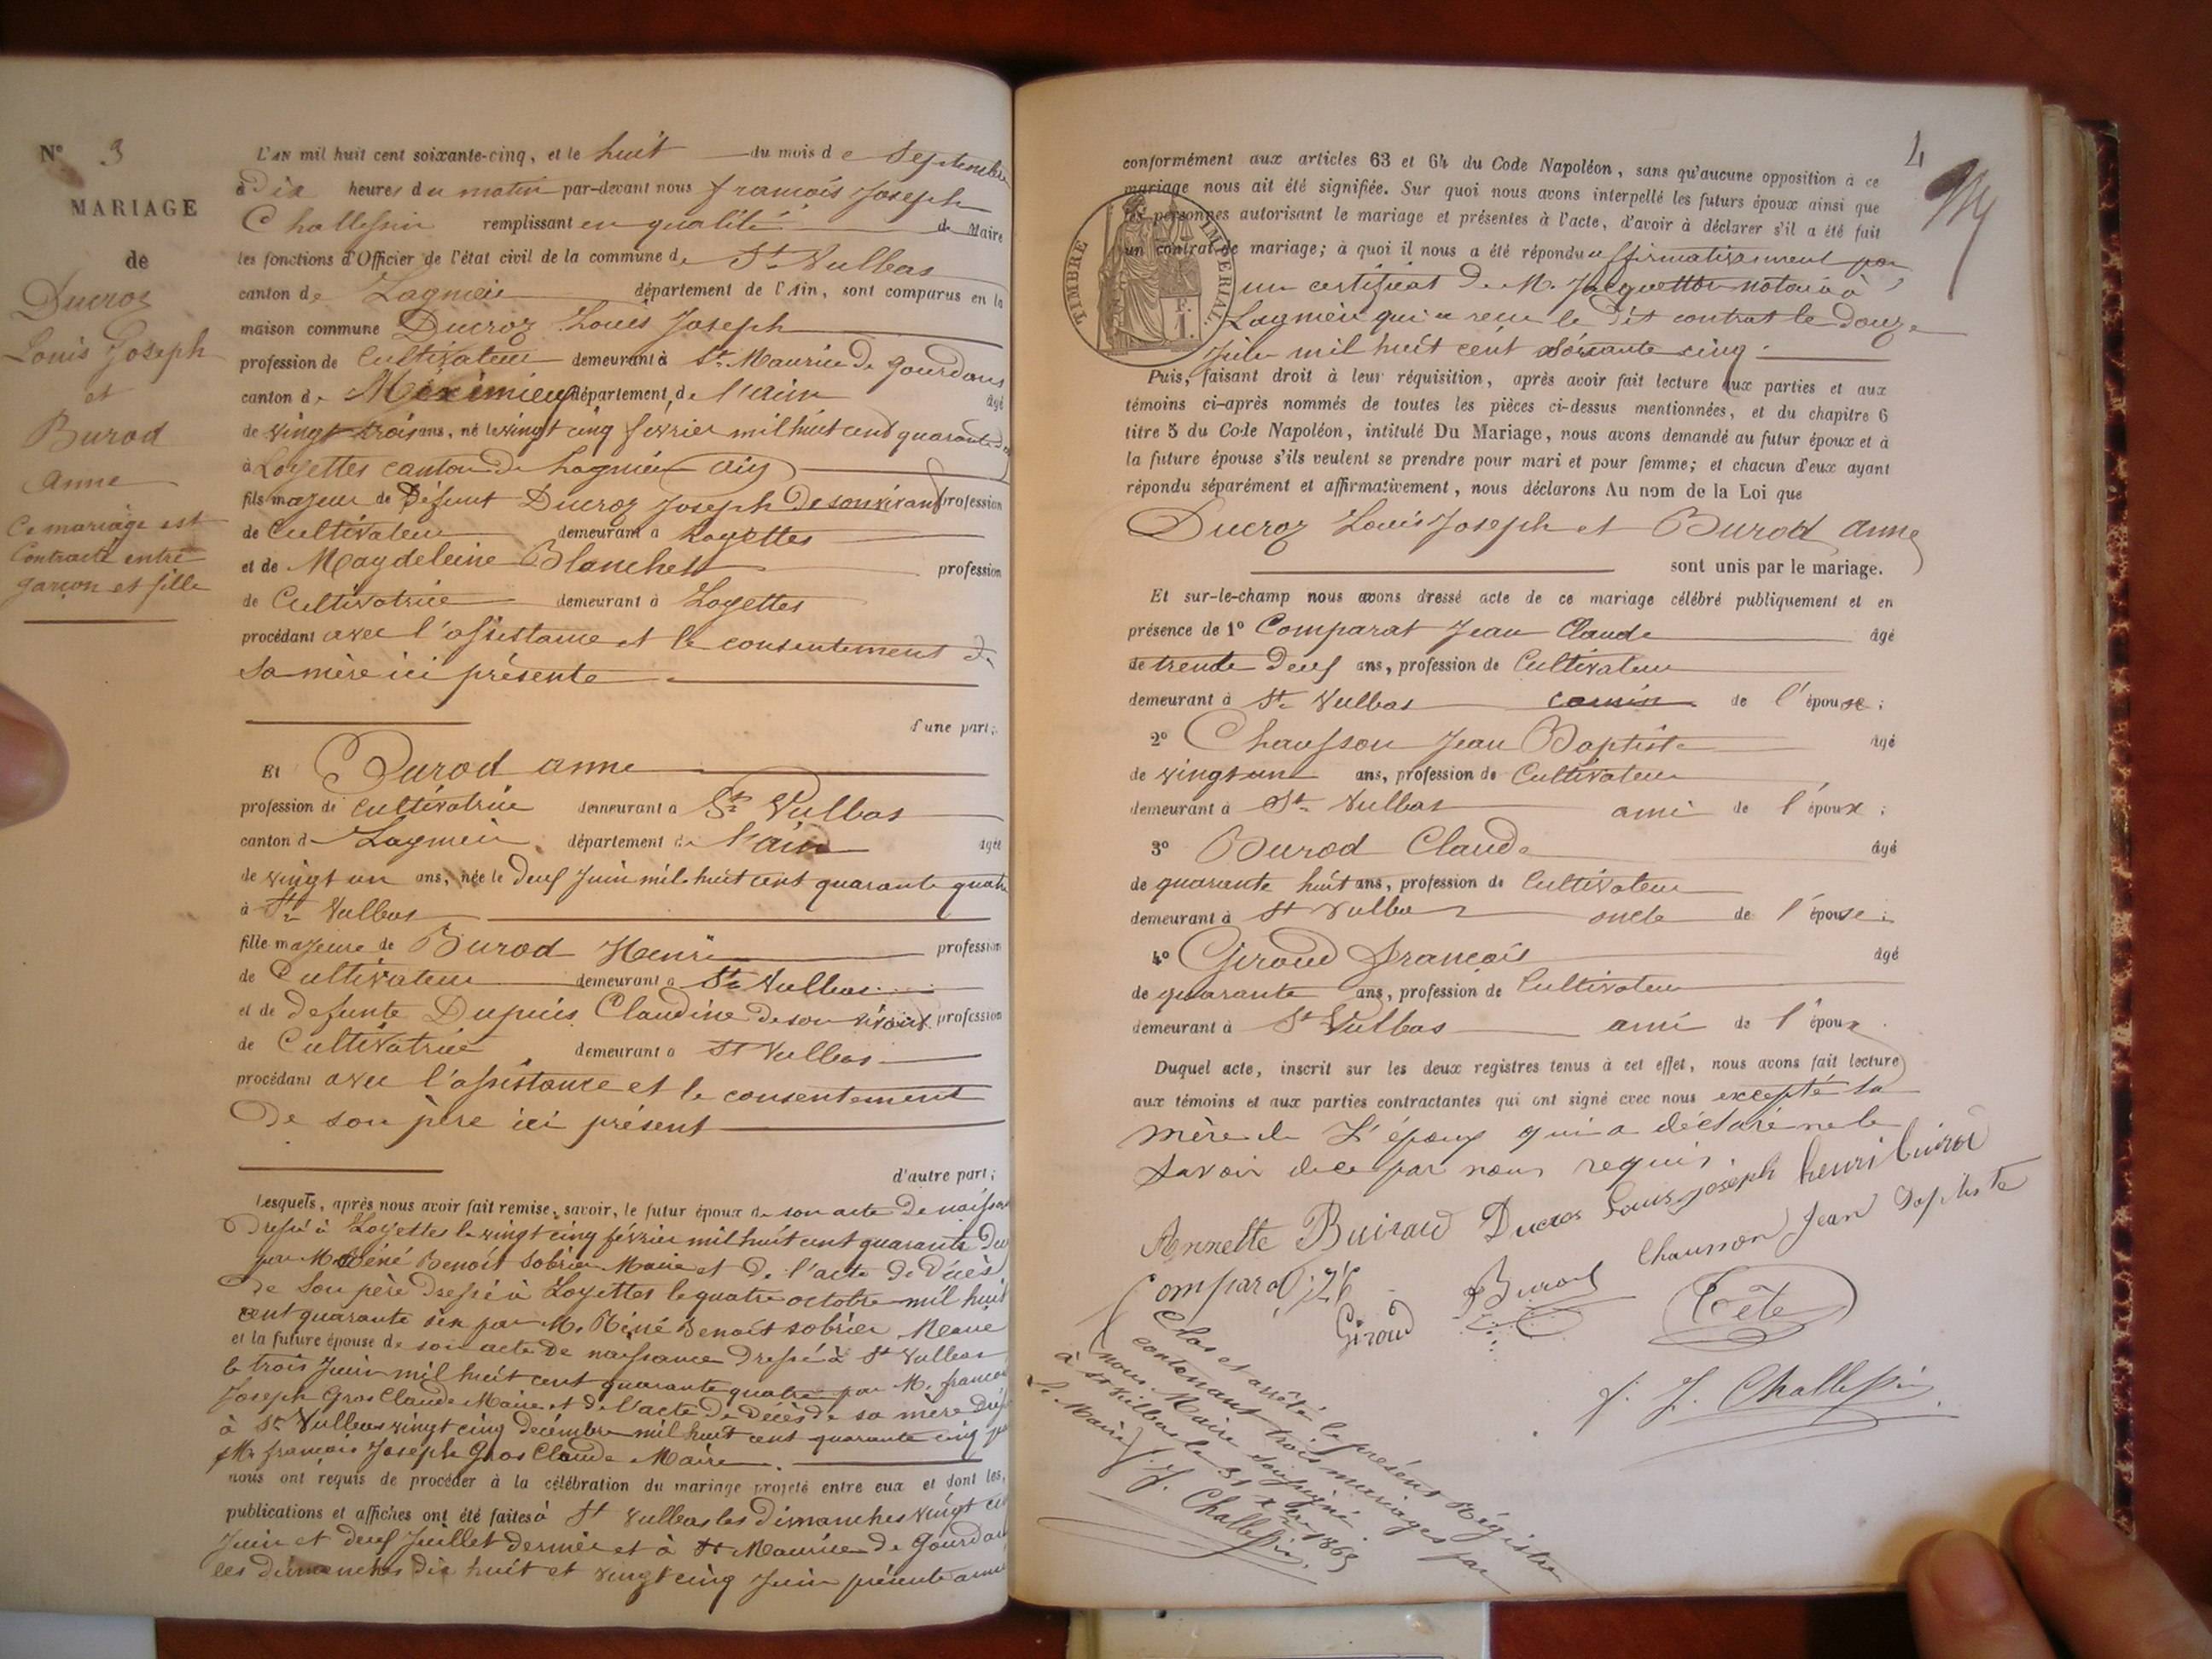 N° 3
MARIAGE
de
Ducroz
Louis Joseph
et
Burod
Anne
Ce mariage est
Contracté entre
garçon et fille
L'AN mil huit cent soixante-cinq, et le huit du mois de Septembre
à Dix heures du matin par-devant nous françois Joseph
Challessin remplissant en qualité de Maire
les fonctions d'Officier de l'état civil de la commune de St Vulbas
canton de Lagnieu département de l'Ain, sont comparus en la
maison commune Ducroz Louis Joseph
profession de Cultivateur demeurant à St Maurice de Gourdans
canton de Meximieu département de l'ain âgé
de vingt trois ans, né le vingt cinq février mil huit cent quarante deux
à Loyettes canton de Lagnieu (ain)
fils majeur de Défunt Ducroz Joseph de son vivant profession
de Cultivateur demeurant à Loyettes
et de Magdeleine Blanchet profession
de Cultivatrice demeurant à Loyettes
procédant avec l'assistance et le consentement de
Sa mère ici présente
d'une part;
Et Burod anne
profession de Cultivatrice demeurant à St Vulbas
canton de Lagnieu département de l'ain âgée
de vingt un ans, née le deux Juin mil huit cent quarante quatre
à St Vulbas
fille majeure de Burod Henri profession
de Cultivateur demeurant à St Vulbas
et de defunte Dupuis Claudine de son vivant profession
de Cultivatrice demeurant à St Vulbas
procédant avec l'assistance et le consentement
De son père ici présent
d'autre part;
Lesquels, après nous avoir fait remise, savoir, le futur époux de son acte de naissance
Dressé à Loyettes le vingt cinq février mil huit cent quarante deux
par M. Réné Benoit Sobrier Maire et de l'acte de décès
de Son père dressé à Loyettes le quatre octobre mil huit
cent quarante six par M. Réné Benoit Sobrier Maire
et la future épouse de son acte de naissance dressé à St Vulbas
le trois Juin mil huit cent quarante quatre par M. françois
Joseph Gros Claude Maire et de l'acte de décès de sa mère
à St Vulbas vingt cinq décembre mil huit cent quarante cinq par
M. françois Joseph Gros Claude Maire.
nous ont requis de procéder à la célébration du mariage projeté entre eux et dont les
publications et affiches ont été faites à St Vulbas les dimanches vingt
Juin et deux Juillet dernier et à St Maurice de Gourdans
les dimanches dix huit et vingt cinq Juin présente année
4
conformément aux articles 63 et 64 du Code Napoléon, sans qu'aucune opposition à ce
mariage nous ait été signifiée. Sur quoi nous avons interpellé les futurs époux ainsi que
les personnes autorisant le mariage et présentes à l'acte, d'avoir à déclarer s'il a été fait
un contrat de mariage; à quoi il nous a été répondu affirmativement par
TIMBRE IMPERIAL
F. 1.
un certificat de M. Jacquettor notaire à
Lagnieu qui a reçu le dit contrat le douze
Juin mil huit cent Soixante cinq.
Puis, faisant droit à leur réquisition, après avoir fait lecture aux parties et aux
témoins ci-après nommés de toutes les pièces ci-dessus mentionnées, et du chapitre 6
titre 5 du Code Napoléon, intitulé Du Mariage, nous avons demandé au futur époux et à
la future épouse s'ils veulent se prendre pour mari et pour femme; et chacun d'eux ayant
répondu séparément et affirmativement, nous déclarons Au nom de la Loi que
Ducroz Louis Joseph et Burod Anne
sont unis par le mariage.
Et sur-le-champ nous avons dressé acte de ce mariage célébré publiquement et en
présence de 1° Comparat Jean Claude âgé
de trente deux ans, profession de Cultivateur
demeurant à St Vulbas cousin de l'épouse;
2° Chausson Jean Baptiste âgé
de vingt un ans, profession de Cultivateur
demeurant à St Vulbas ami de l'époux;
3° Burod Claude âgé
de quarante huit ans, profession de Cultivateur
demeurant à St Vulbas oncle de l'épouse;
4° Giroud François âgé
de quarante ans, profession de Cultivateur
demeurant à St Vulbas ami de l'époux.
Duquel acte, inscrit sur les deux registres tenus à cet effet, nous avons fait lecture
aux témoins et aux parties contractantes qui ont signé avec nous excepté la
mère de L'époux qui a déclaré ne le
savoir de ce par nous requis.
Annette Buirad Ducroz Louis joseph henri buirod
Comparat J C Burod Chausson Jean Baptiste
Giroud Tête
f. J. Challessin
Clos et arrêté le présent Régistre
contenant trois mariages par
nous Maire soussigné.
à St Vulbas le 31 Xbre 1865
Le Maire
f. J. Challessin.